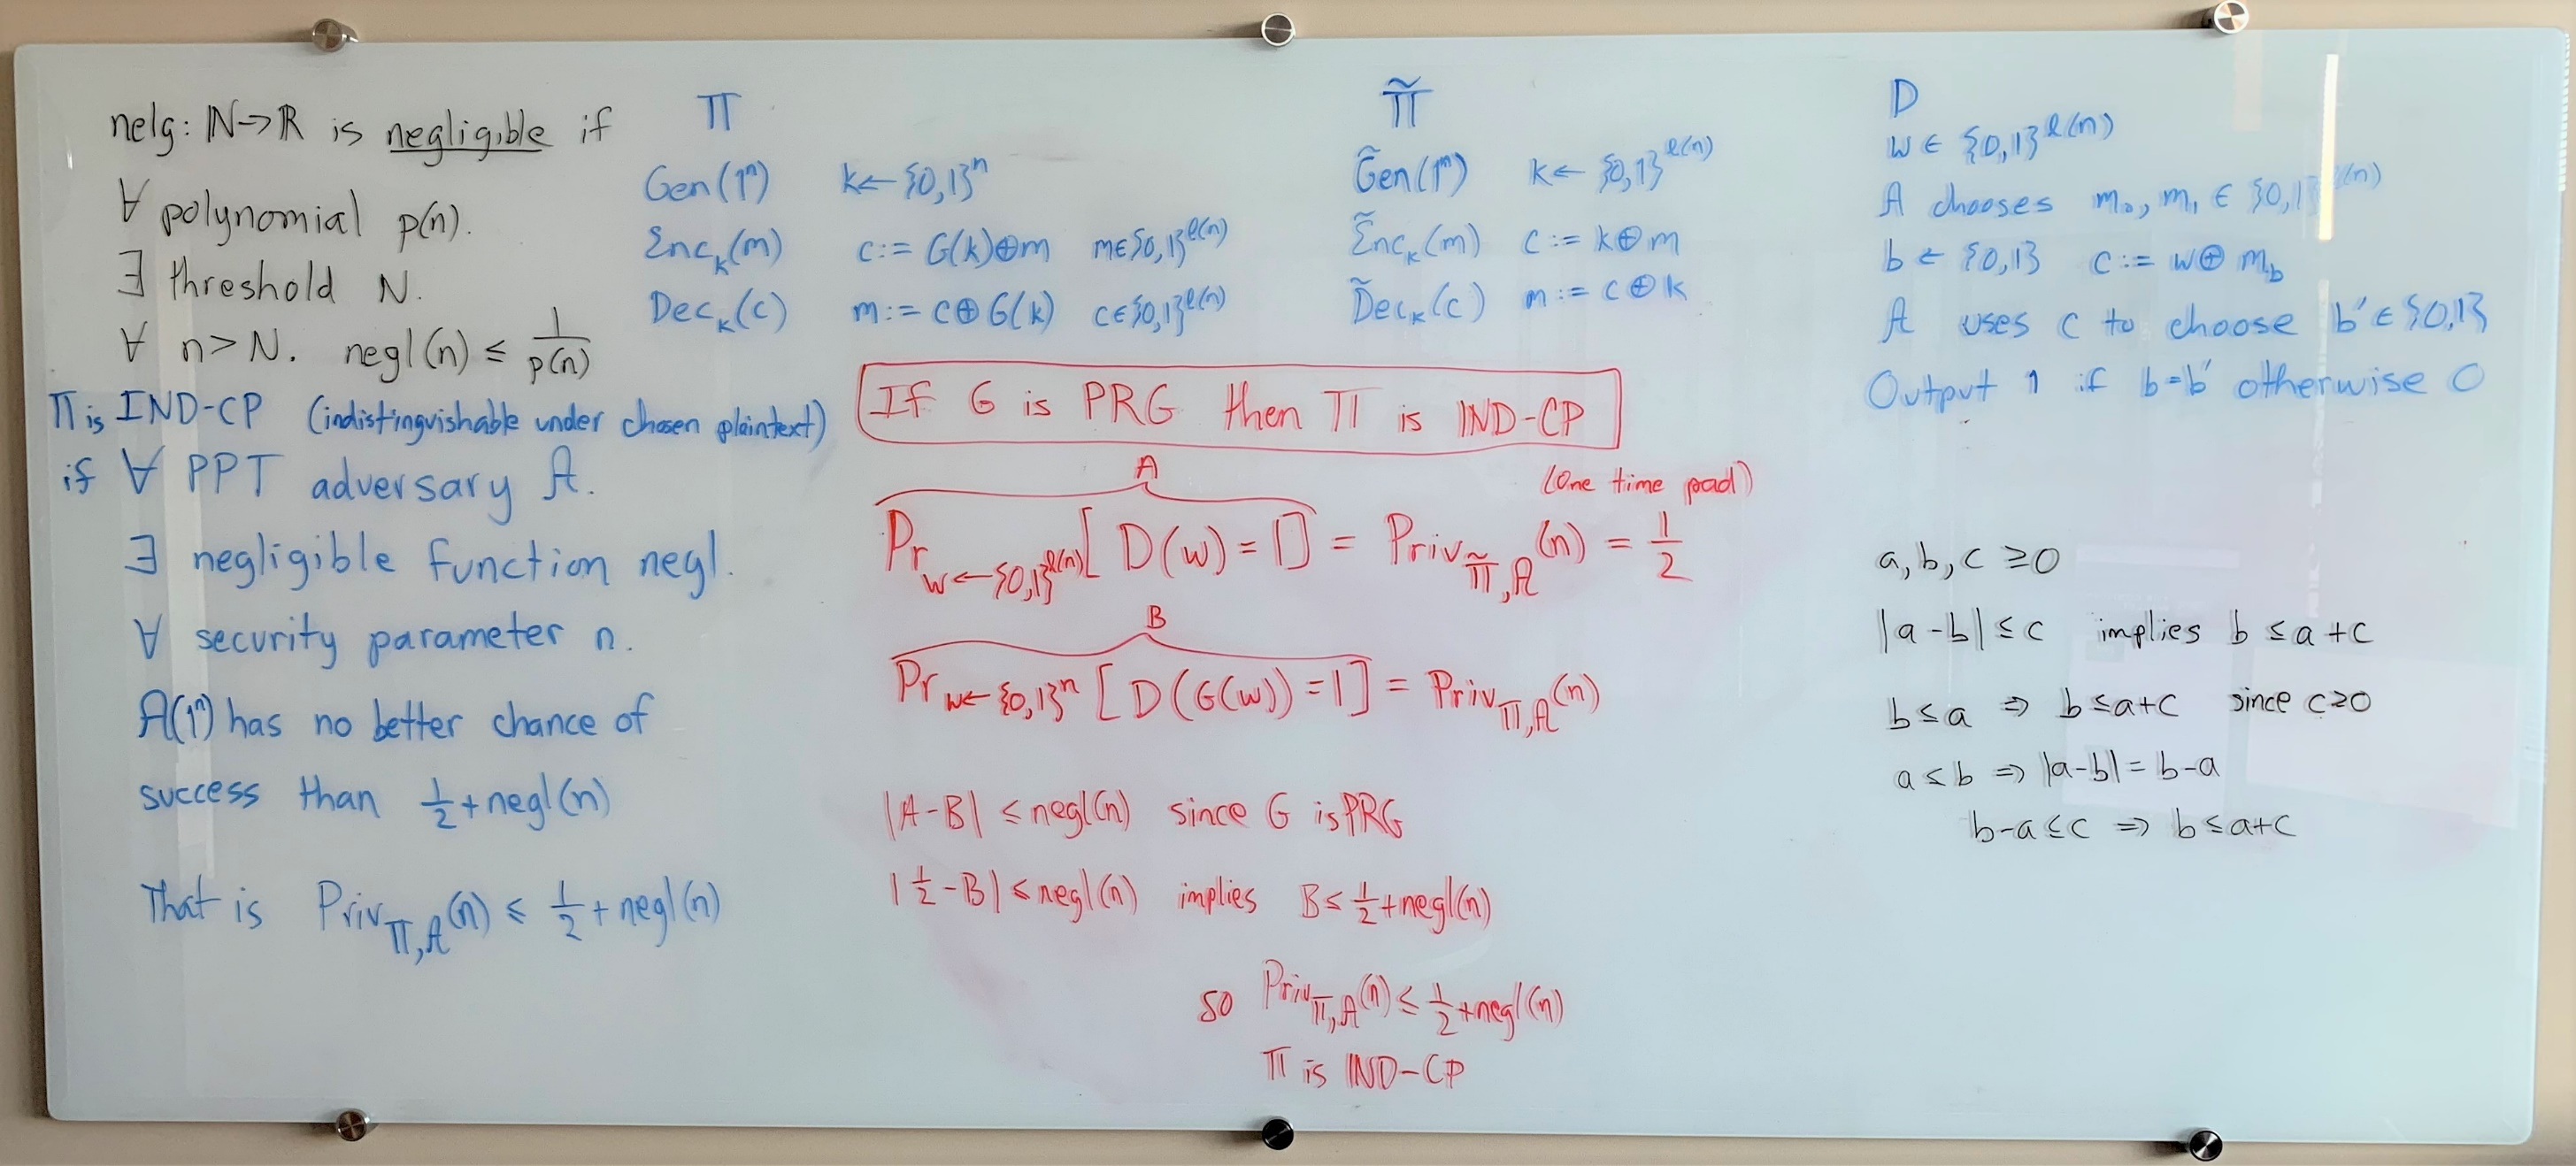 nelg: ℕ→ℝ is negligible if
∀ polynomial p(n).
∃ threshold N.
∀ n > N. negl(n) ≤ 1/p(n)
Π is IND-CP (indistinguishable under chosen plaintext)
if ∀ PPT adversary A.
∃ negligible function negl.
∀ security parameter n.
A(1ⁿ) has no better chance of
success than 1/2 + negl(n)
That is Priv_{Π,A}(n) ≤ 1/2 + negl(n)
Π
Gen(1ⁿ) k ← {0,1}ⁿ
Enc_k(m) c := G(k)⊕m m∈{0,1}^{ℓ(n)}
Dec_k(c) m := c⊕G(k) c∈{0,1}^{ℓ(n)}
Π̃
G̃en(1ⁿ) k ← {0,1}^{ℓ(n)}
Ẽnc_k(m) c := k⊕m
D̃ec_k(c) m := c⊕k
If G is PRG then Π is IND-CP
A
(One time pad)
Pr_{w←{0,1}^{ℓ(n)}}[D(w)=1] = Priv_{Π̃,A}(n) = 1/2
B
Pr_{w←{0,1}ⁿ}[D(G(w))=1] = Priv_{Π,A}(n)
|A-B| ≤ negl(n) since G is PRG
|1/2-B| ≤ negl(n) implies B ≤ 1/2+negl(n)
so Priv_{Π,A}(n) ≤ 1/2+negl(n)
Π is IND-CP
D
w ∈ {0,1}^{ℓ(n)}
A chooses m₀, m₁ ∈ {0,1}^{ℓ(n)}
b ← {0,1} c := w⊕m_b
A uses c to choose b' ∈ {0,1}
Output 1 if b=b' otherwise 0
a, b, c ≥ 0
|a-b| ≤ c implies b ≤ a+c
b ≤ a ⇒ b ≤ a+c since c≥0
a ≤ b ⇒ |a-b| = b-a
b-a ≤ c ⇒ b ≤ a+c